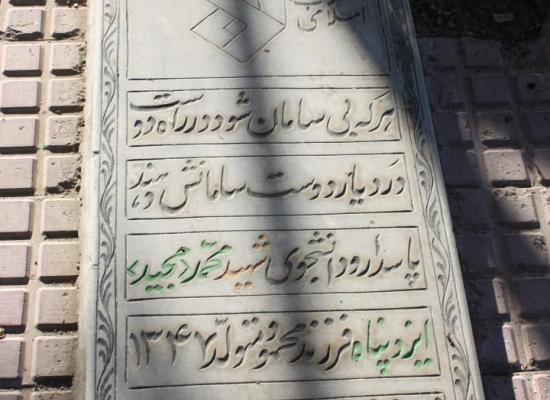 اسلامی
هر که بی سامان شود در راه دوست
در دیار دوست سامانش دهند
پاسدار و دانشجوی شهید محمد مجید
ایزدپناه فرزند محمود متولد ۱۳۴۷